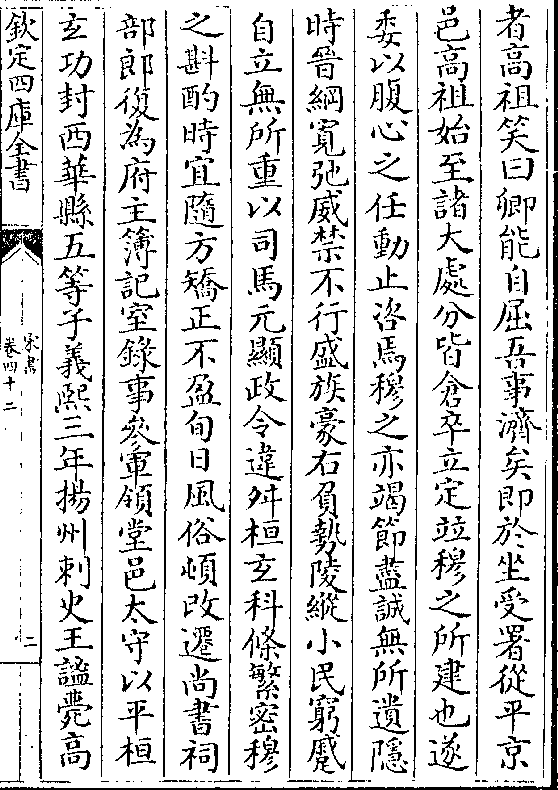 者高祖笑曰卿能自屈吾事濟矣即於坐受署從平京
邑高祖始至諸大處分皆倉卒立定並穆之所建也遂
委以腹心之任動止咨焉穆之亦竭節盡誠無所遺隱
時晉綱寛弛威禁不行盛族豪右負勢陵縱小民窮蹙
自立無所重以司馬元顯政令違舛桓玄科條繁密穆
之斟酌時宜隨方矯正不盈旬日風俗頓改遷尚書祠
部郎復為府主簿記室錄事參軍領堂邑太守以平桓
玄功封西華縣五等子義熙三年揚州刺史王謐薨高
欽定四庫全書
宋書
卷四十二
二